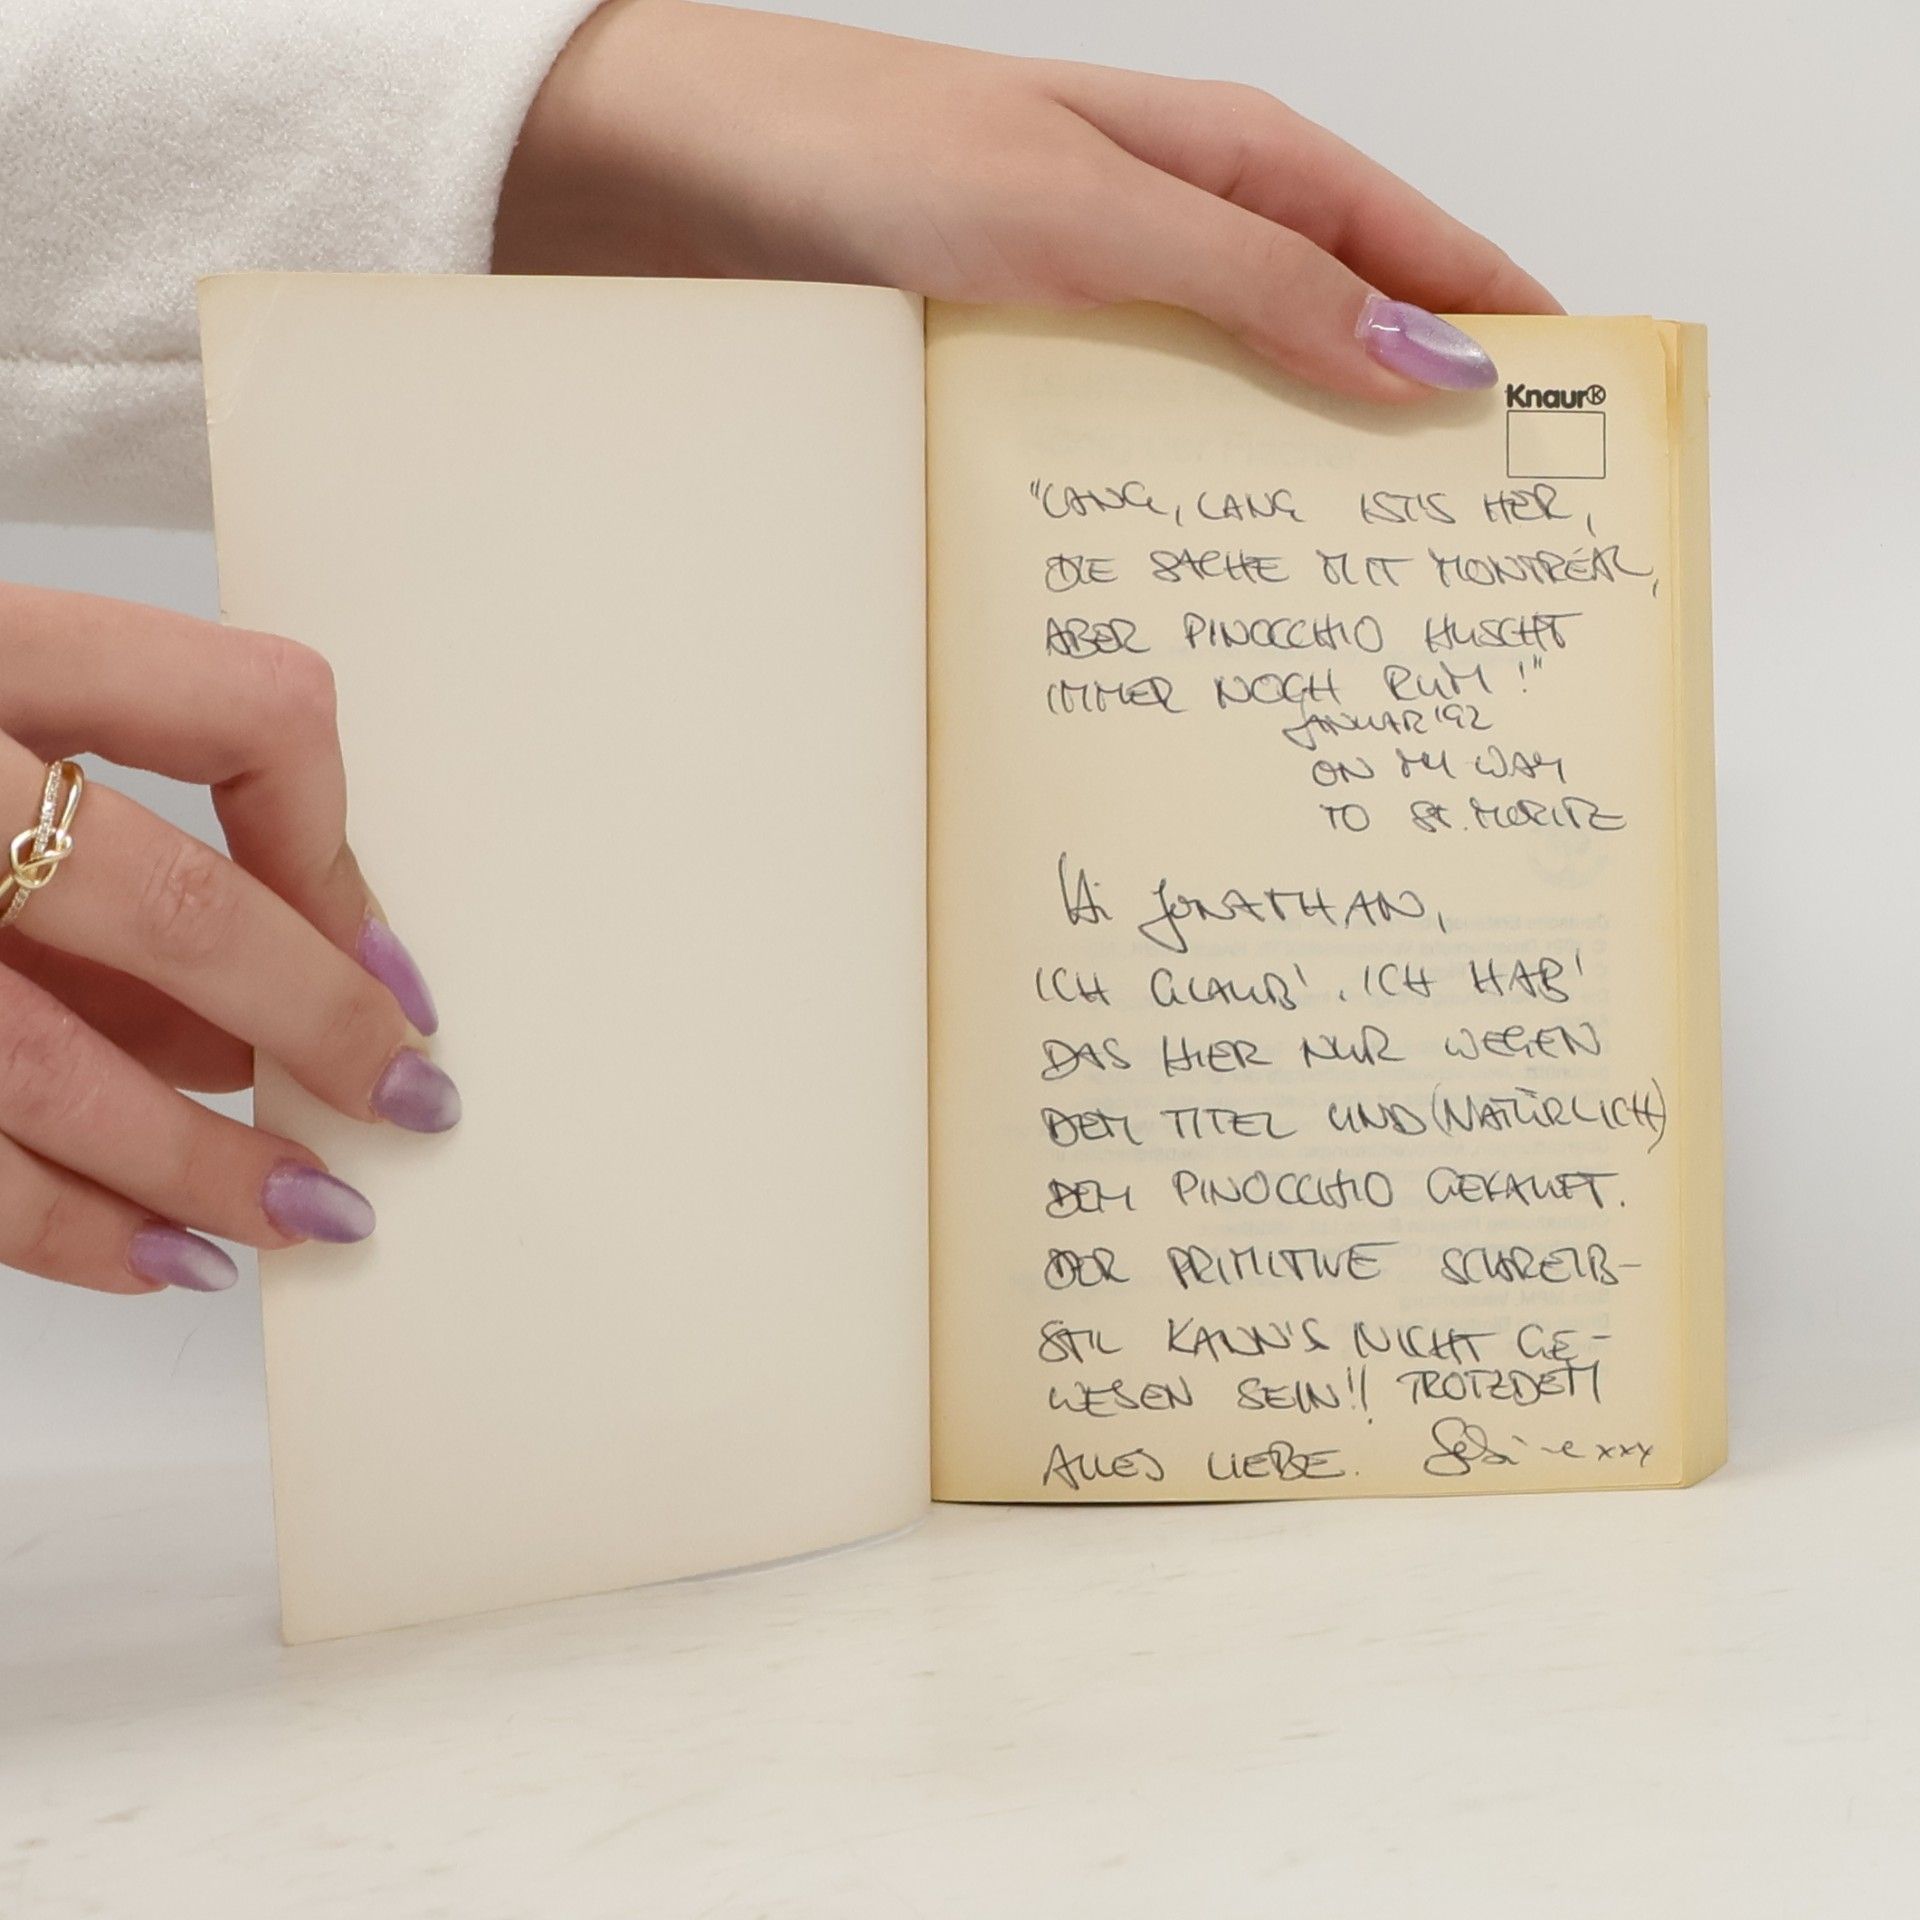 Knaur®
"LANG, LANG IST'S HER,
DIE SACHE MIT MONTRÉAL,
ABER PINOCCHIO HUSCHT
IMMER NOCH RUM!"
JANUAR '92
ON MY WAY
TO ST. MORITZ
Hi JONATHAN,
ICH GLAUB', ICH HAB'
DAS HIER NUR WEGEN
DEM TITEL UND (NATÜRLICH)
DEM PINOCCHIO GEKAUFT.
DER PRIMITIVE SCHREIB-
STIL KANN'S NICHT GE-
WESEN SEIN!! TROTZDEM
ALLES LIEBE. xxx